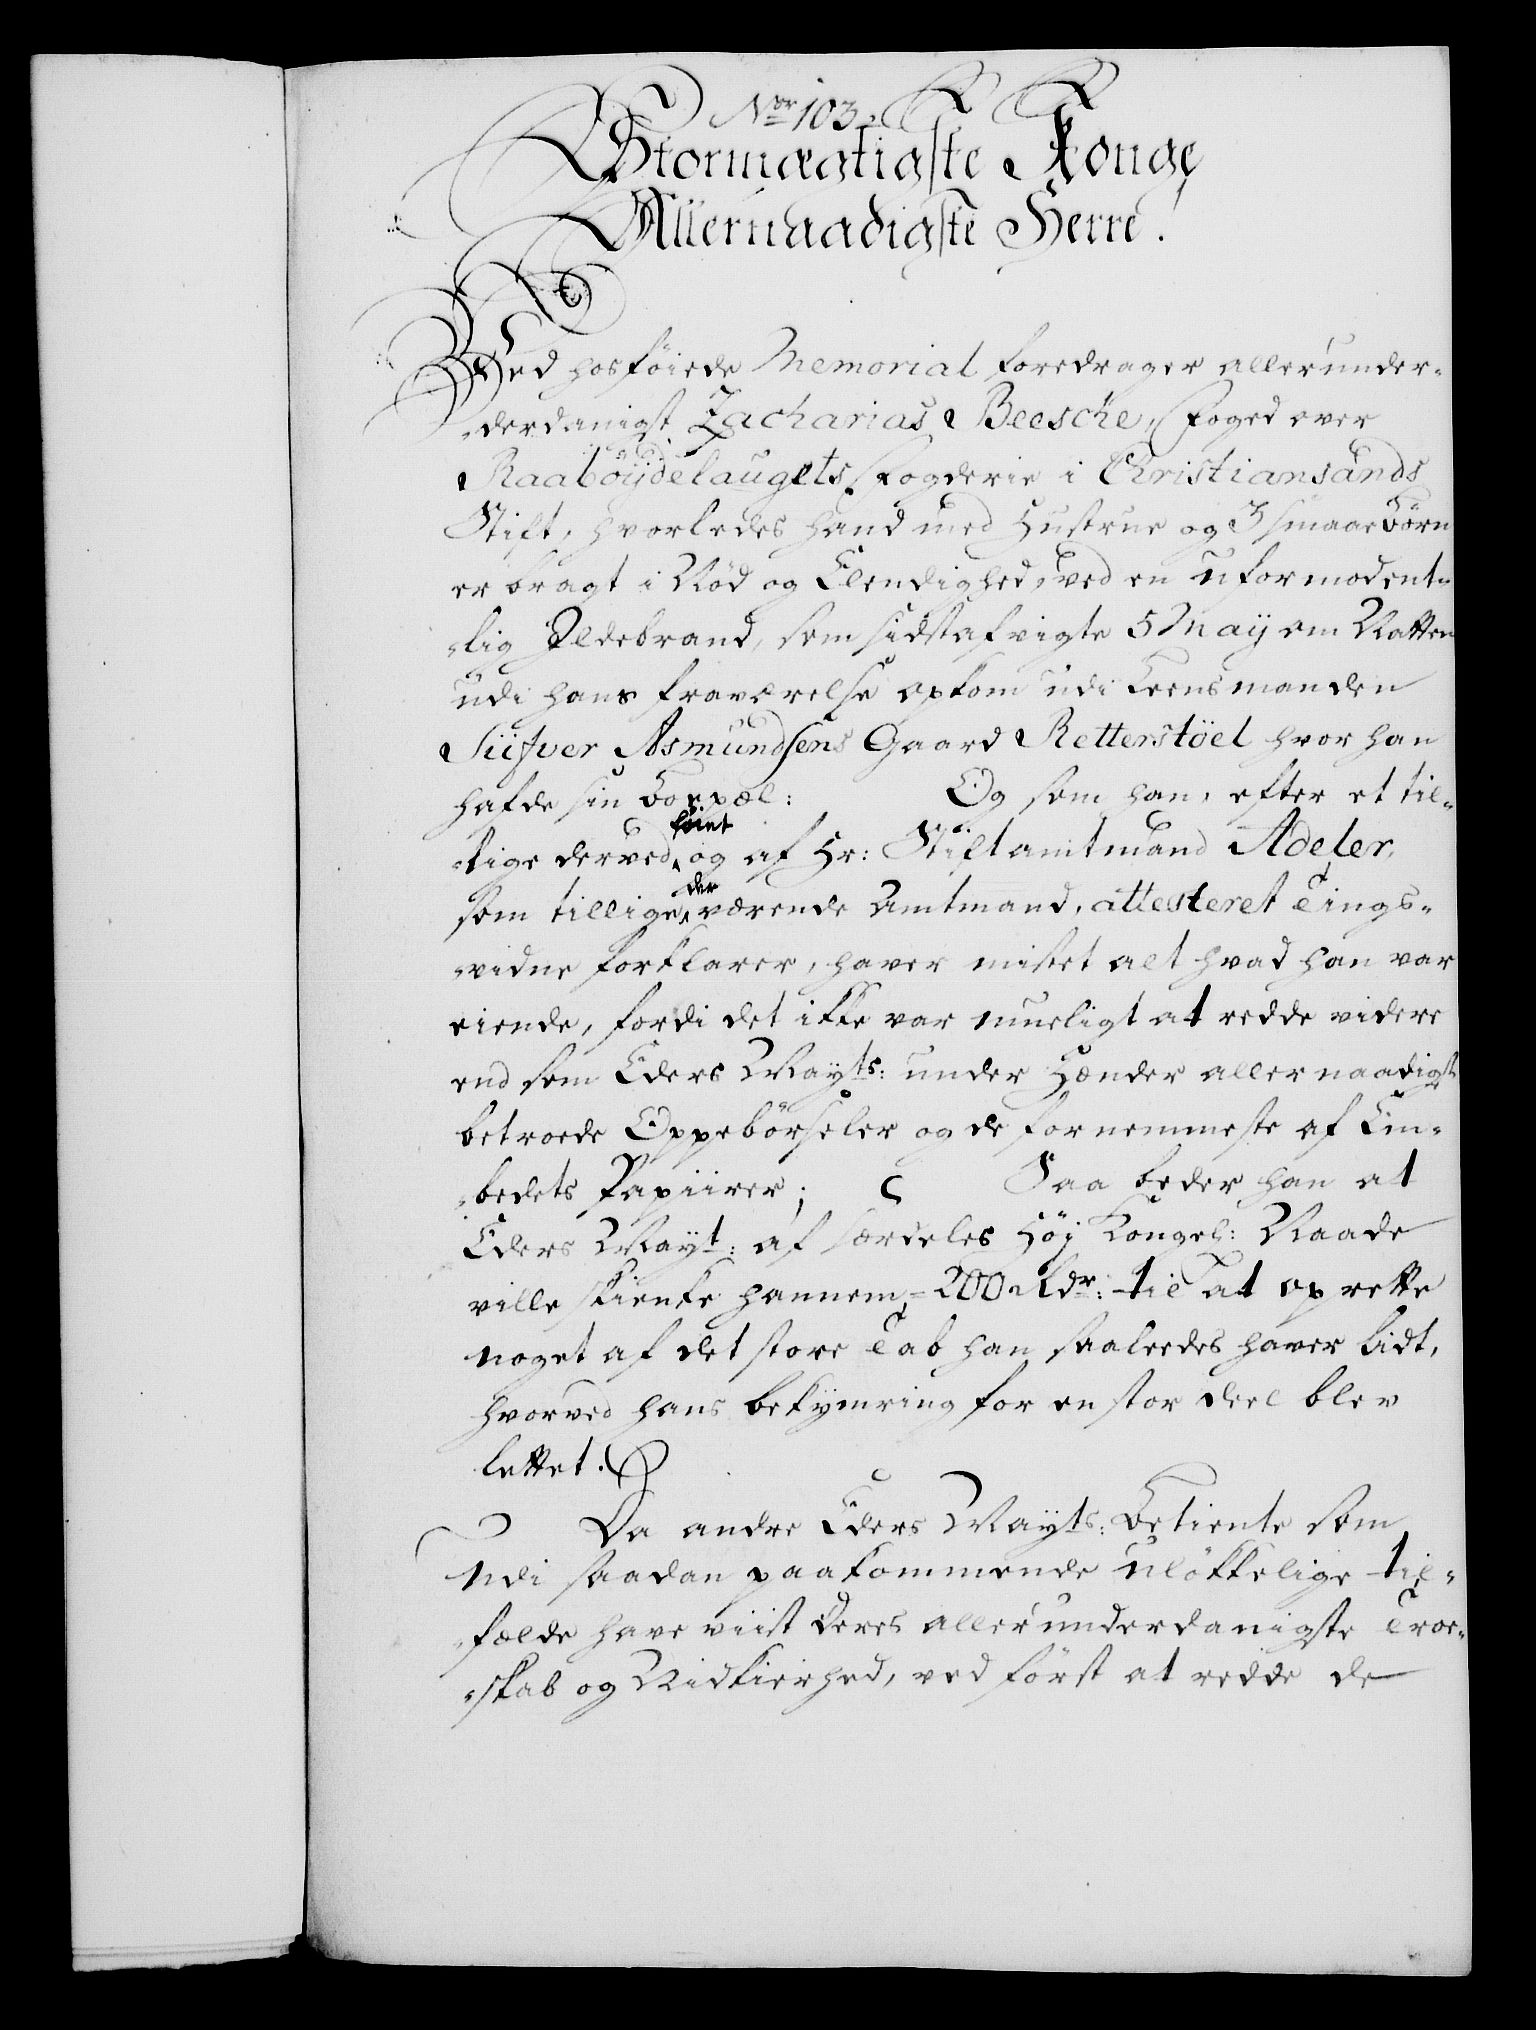 Nor 103.
Stormægtigste Konge
Allernaadigste Herre!
Ved hosföiede Memorial foredrager allerunder-
-derdanigst Zacharias Beesche, Foged over
Raaböijdelaugets Fogderie i Christiansands
Stift, hvorledes hand med Hustrue og 3 smaae Börn
er bragt i Nöd og Elendighed, ved en uformodent-
-lig Ildebrand, som sidstafvigte 5 Maij om Natten
udi hans fraværelse opkom udi Leensmanden
Siifver Asmundsens Gaard Retterstöel hvor han
hafde sin Boepæl: Og som han, efter et til-
föiet
-lige derved, og af Hr: Stiftamtmand Adeler,
der
som tillige værende Amtmand, attesteret Tings-
-vidne forklarer, haver mistet alt hvad han var
eiende, fordi det ikke var mueligt at redde videre
end som Eders Mayts: under Hænder allernaadigst
betroede Oppebörseler og de fornemmeste af Em-
-bedets Papiirer; Saa beder han at
Eders Mayt: af særdeles Höj Kongel: Naade
ville skienke hannem, 200 Rdr: til at oprette
noget af det store Tab han saaleedes haver lidt,
hvorved hans bekymring for en stor deel blev
lettet.
Da andre Eders Mayts: Betiente som
udi saadan paakommende ulökkelige til-
-fælde have viist deres allerunderdanigste Troe-
-skab og Nidkierhed, ved först at redde de